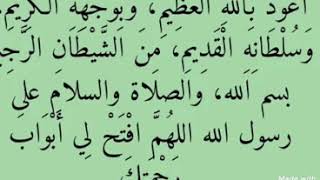 أعوذ بالله العظيم، وبوجهه الكريم،
وَسُلْطَانِهِ الْقَدِيمِ، مِنَ الشَّيْطَانِ الرَّجِيمِ
بسم الله، والصلاة والسلام على
رسول الله اللهُمَّ افْتَحْ لِي أَبْوَابَ
رَحْمَتِكَ
Made with